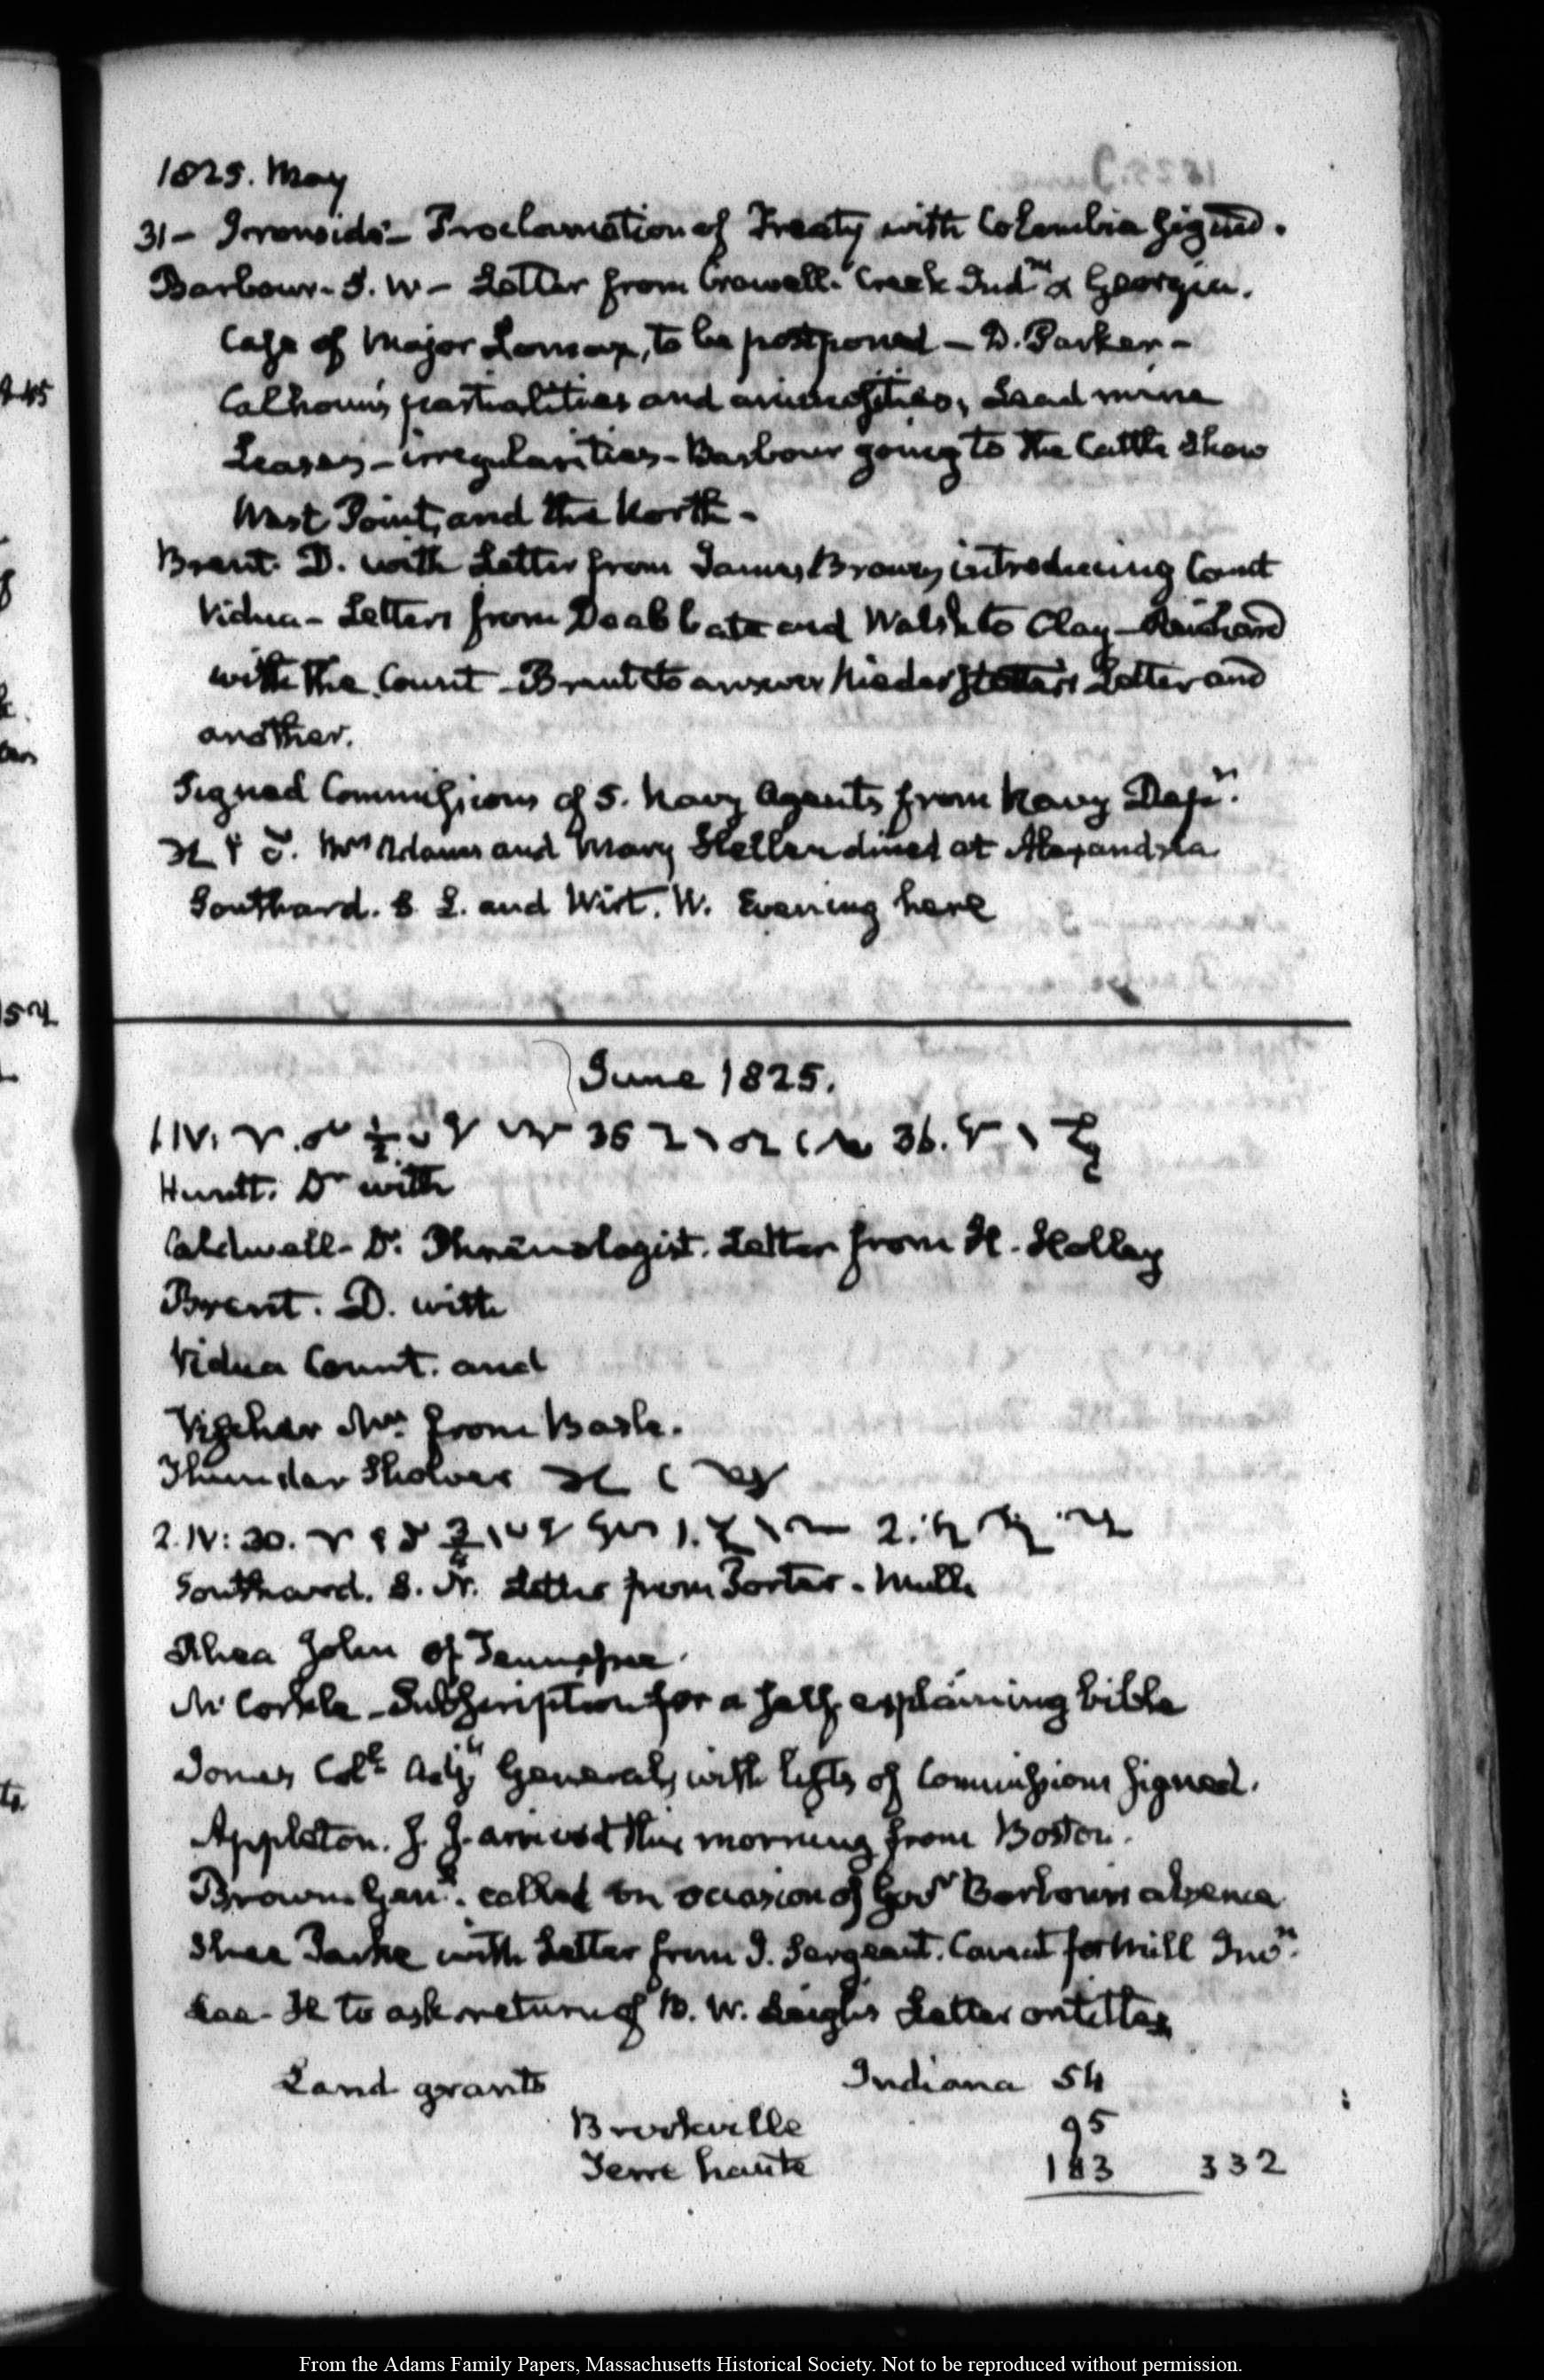 1825. May
31 - Ironside - Proclamation of Treaty with Colombia signed.
Barbour. S. W - Letter from Crowell. Creek Indns & Georgia.
Case of Major Lomax, to be postponed - D. Parker -
Calhoun's partialities and animosities, Lead mine
Leases - irregularities - Barbour going to the Cattle Show
West Point, and the North -
Brent. D. with Letter from James Brown, introducing Count
Vidua - Letters from and Walsh to Clay -
with the Count - Brent to answer Letter and
another.
Signed Commissions of 5. Navy Agents from Navy Dept.
Mrs Adams and Mary Hellen dined at Alexandria
Southard. S. L. and Wirt. W. Evening here
June 1825.
1. IV. 36.
Huntt. Dr with
Caldwell. Dr. Phrenologist. Letter from H. Holley
Brent. D. with
Vidua Count. and
Vischer Mr. from Basle.
Thunder Shower
2. IV: 30.
Southard. S. N. Letter from Porter.
Rhea John of Tennessee.
McCorkle - Subscription for a self explaining bible
Jones Coll. Adjt. General, with lists of Commissions signed.
Appleton. J. J. arrived this morning from Boston.
Brown. Genl. called on occasion of Govr Barbour's absence
with Letter from J. Sergeant. Caveat for Mill
Lee - He to ask return of B. W. Leigh's Letter
Land grants Indiana 54
Brookville 95
Terre haute 183 332
From the Adams Family Papers, Massachusetts Historical Society. Not to be reproduced without permission.